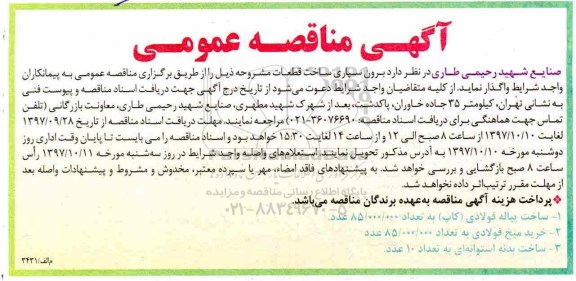 آگهی مناقصه عمومی
صنایع شهید رحیمی طاری در نظر دارد برون سپاری ساخت قطعات مشروحه ذیل را از طریق برگزاری مناقصه عمومی به پیمانکاران
واجد شرایط واگذار نماید. از کلیه متقاضیان واجد شرایط دعوت می‌شود از تاریخ درج آگهی جهت دریافت اسناد مناقصه و پیوست فنی
به نشانی تهران، کیلومتر ۳۵ جاده خاوران، پاکدشت، بعد از شهرک شهید مطهری، صنایع شهید رحیمی طاری، معاونت بازرگانی (تلفن
تماس جهت هماهنگی برای دریافت اسناد مناقصه: ۳۶۰۷۶۶۹۰-۰۲۱) مراجعه نمایند. مهلت دریافت اسناد مناقصه از تاریخ ۱۳۹۷/۰۹/۲۸
لغایت ۱۳۹۷/۱۰/۱۰ از ساعت ۸ صبح الی ۱۲ و از ساعت ۱۴ لغایت ۱۵:۳۰ خواهد بود و اسناد مناقصه را می بایست تا پایان وقت اداری روز
دوشنبه مورخه ۱۳۹۷/۱۰/۱۰ به آدرس مذکور تحویل نمایند. استعلام‌های واصله واجد شرایط در روز سه‌شنبه مورخه ۱۳۹۷/۱۰/۱۱ رأس
ساعت ۸ صبح بازگشایی و بررسی خواهد شد. به پیشنهادهای فاقد امضاء، مهر یا سپرده معتبر، مخدوش و مشروط و پیشنهادات واصله بعد
از مهلت مقرر ترتیب‌اثر داده نخواهد شد.
پایگاه اطلاع رسانی مناقصه و مزایده
❖ پرداخت هزینه آگهی مناقصه به‌عهده برندگان مناقصه می‌باشد.
۰۲۱-۸۸۳۴۹۶۷۰-۵
۱- ساخت پیاله فولادی (کاپ) به تعداد ۸۵/۰۰۰/۰۰۰ عدد
۲- خرید میخ فولادی به تعداد ۸۵/۰۰۰/۰۰۰ عدد
۳- ساخت بدنه استوانه‌ای به تعداد ۱۰ عدد.
م‌الف/۳۴۳۱